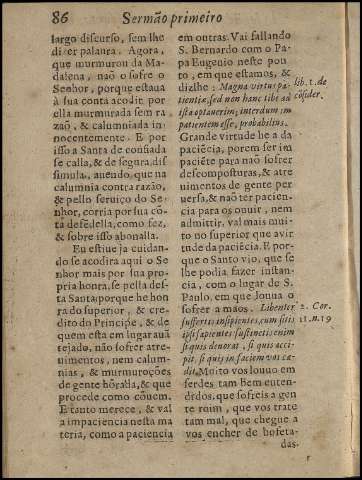 86 Sermão primeiro
largo discurso, sem lhe
dizer palaura. Agora,
que murmurou da Ma-
dalena, não o sofre o
Senhor, porque estaua
à sua conta acodir por
ella murmurada sem ra
zaõ, & calumniada in-
nocentemente. E por
isso a Santa de confiada
se calla, & de segura dis
simula, auendo, que na
calumnia contra razão,
& pello seruiço do Se-
nhor, corria por sua cõ-
ta defedella, como fez,
& sobre isso abonalla.
Eu estiue ja cuidan-
do se acodira aqui o Se
nhor mais por sua pro-
pria honra, se pella des-
ta Santa; porque he hon
ra do superior, & cre-
dito do Principe, & de
quem esta em lugar auã
tejado, não sofrer atre-
uimentos, nem calum-
nias, & murmuroções
de gente hõrada, & que
procede como cõuem.
E tanto merece, & val
a impaciencia nesta ma
teria, como a paciencia
em outras. Vai fallando
S. Bernardo com o Pa-
pa Eugenio neste pou
to, em que estamos, &
dizlhe: Magna virtus pa-
tientiæ, sed non hanc tibi ad
ista optauerim; interdum im
patientem esse, probabilius.
Grande virtude he a da
paciẽcia, porem ser im
paciẽte para não sofrer
descomposturas, & atre
uimentos de gente per
uersa, & não ter pacien-
cia para os ouuir, nem
admittir, val mais mui-
to no superior que a vir
tude da paciẽcia. E por-
que o Santo vio, que se
lhe podia fazer instan-
cia, com o lugar de S.
Paulo, em que louua o
sofrer a mãos. Libenter
suffertis insipientes, cum sitis
ipsi sapientes: sustinetis enim
si quis deuorat, si quis acci-
pit, si quis in faciem vos cæ-
dit. Muito vos louuo em
serdes tam Bem enten-
didos, que sofreis a gen
te roim, que vos trate
tam mal, que chegue a
vos encher de bofeta-
das.
lib. 1. de
cõsider.
2. Cor.
11. n. 19